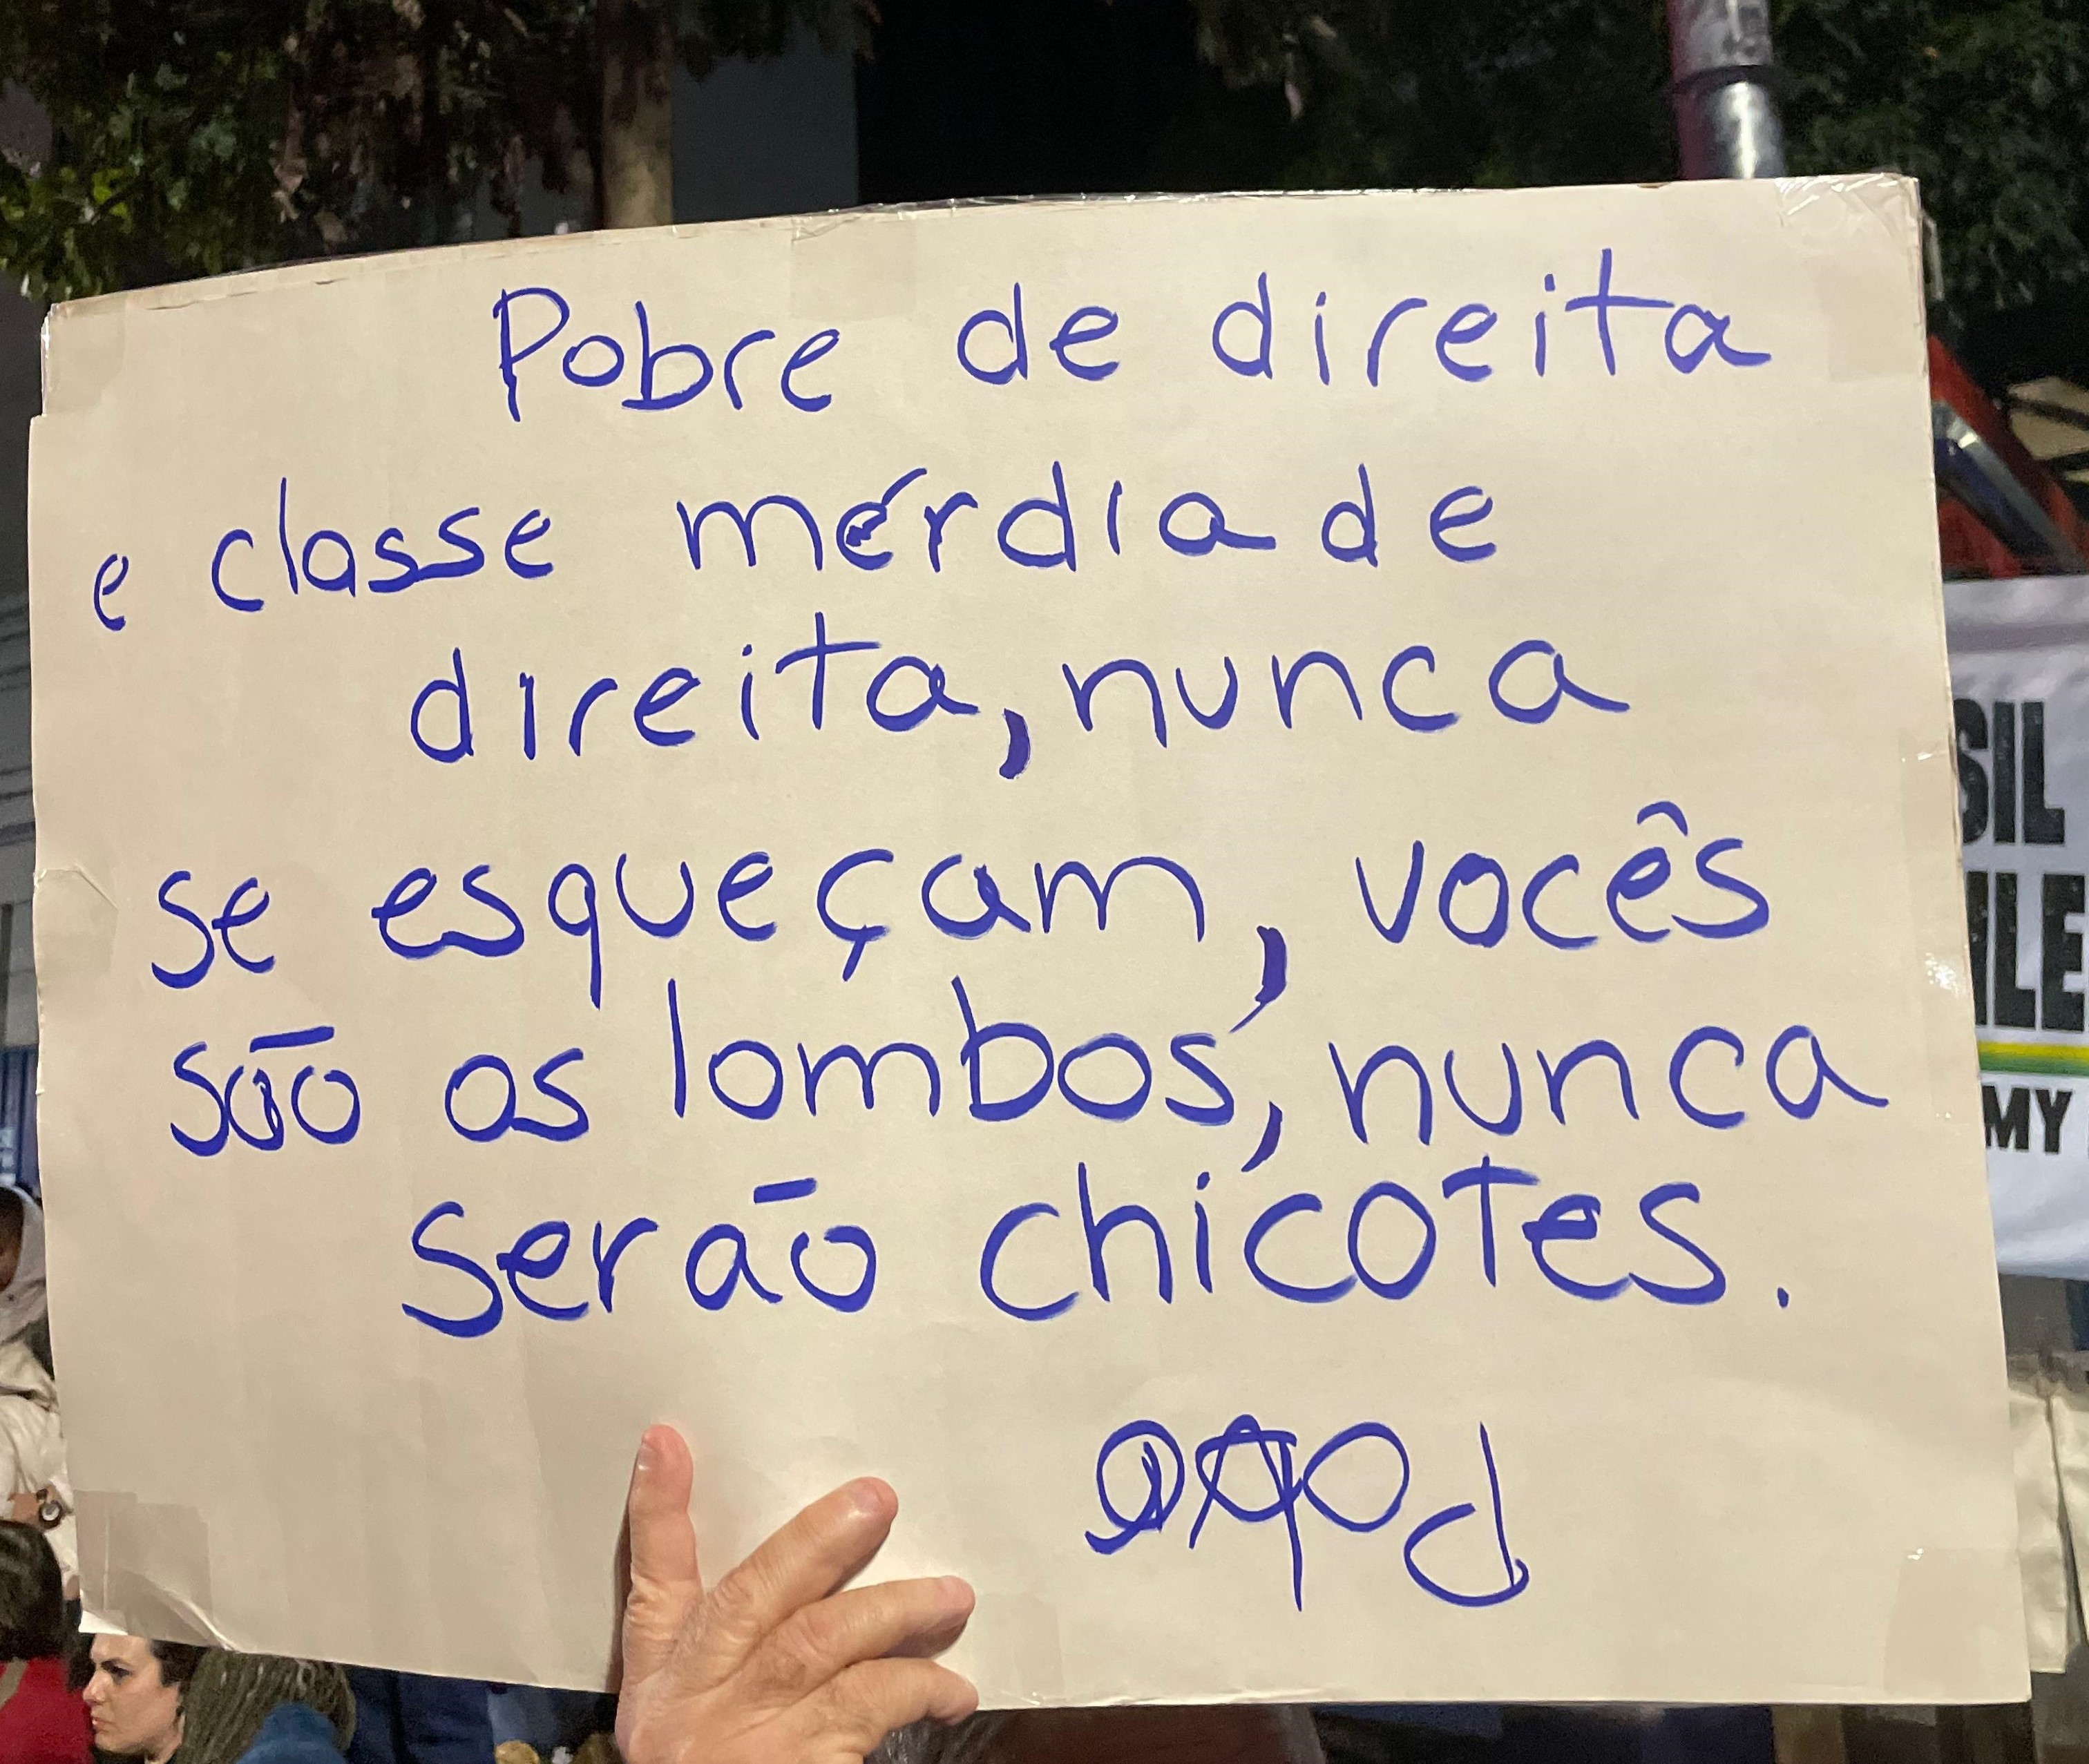 Pobre de direita
e classe mérdia de
direita, nunca
se esqueçam, vocês
são os lombos, nunca
serão chicotes.
SIL
ILE
MY